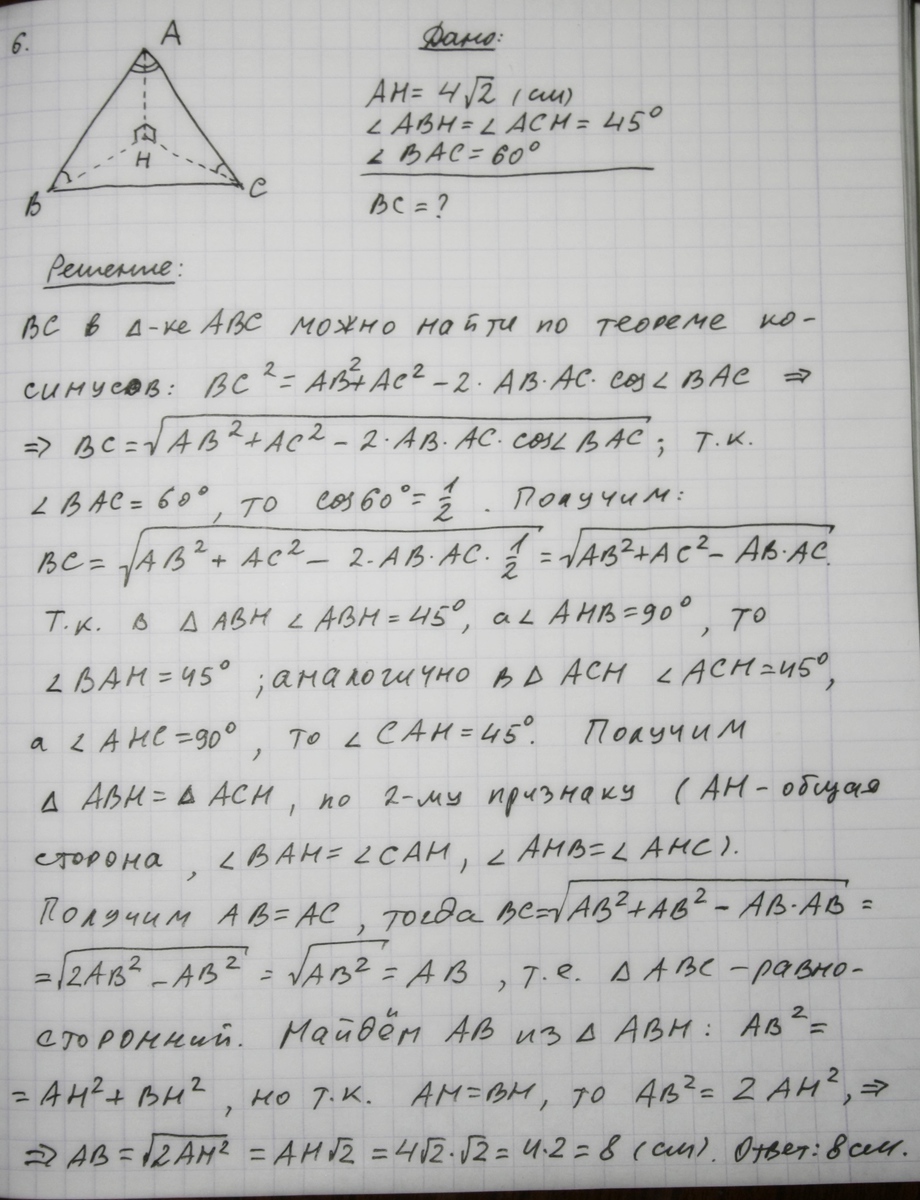 6.
A
H
B
C
Дано:
AH = 4√2 (см)
∠ ABH = ∠ ACH = 45°
∠ BAC = 60°
BC = ?
Решение:
BC в Δ-ке ABC можно найти по теореме ко-
синусов: BC² = AB² + AC² - 2 · AB · AC · cos∠ BAC ⇒
⇒ BC = √(AB² + AC² - 2 · AB · AC · cos∠ BAC) ; т.к.
∠ BAC = 60°, то cos60° = 1/2 . Получим:
BC = √(AB² + AC² - 2 · AB · AC · 1/2) = √(AB² + AC² - AB · AC).
Т.к. в Δ ABH ∠ ABH = 45°, а ∠ AHB = 90°, то
∠ BAH = 45° ; аналогично в Δ ACH ∠ ACH = 45°,
а ∠ AHC = 90°, то ∠ CAH = 45°. Получим
Δ ABH = Δ ACH, по 2-му признаку (AH - общая
сторона, ∠ BAH = ∠ CAH, ∠ AHB = ∠ AHC).
Получим AB = AC, тогда BC = √(AB² + AB² - AB · AB) =
= √(2AB² - AB²) = √(AB²) = AB, т.е. Δ ABC - равно-
сторонний. Найдём AB из Δ ABH: AB² =
= AH² + BH², но т.к. AH = BH, то AB² = 2 AH², ⇒
⇒ AB = √(2AH²) = AH√2 = 4√2 · √2 = 4 · 2 = 8 (см). Ответ: 8 см.